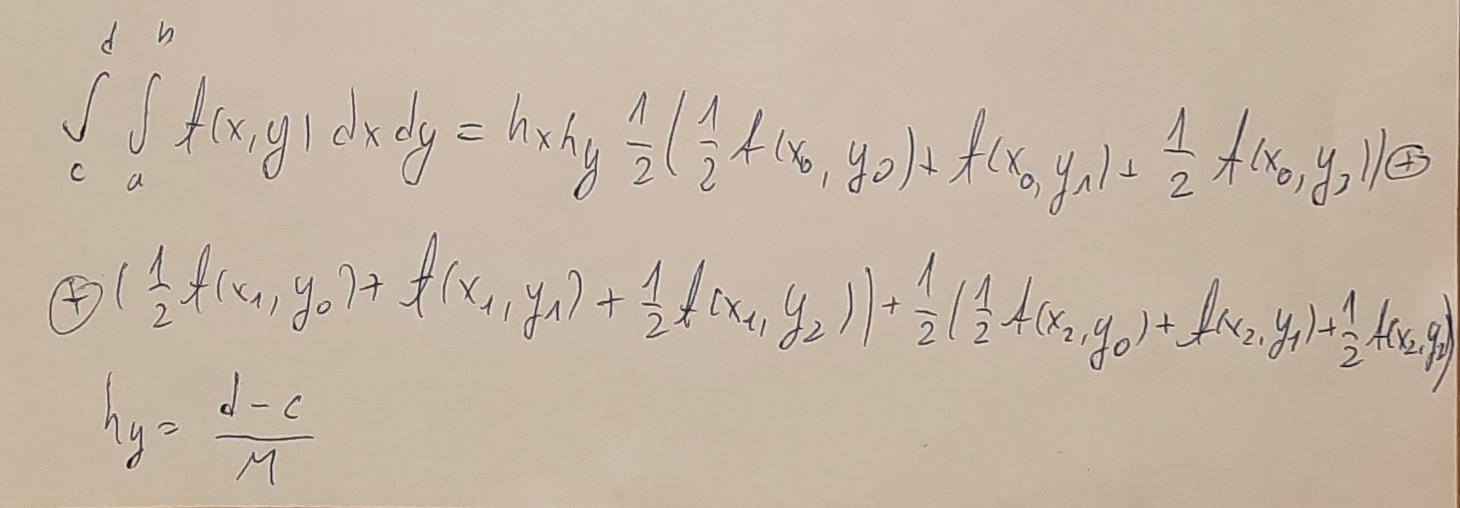 ∫_c^d ∫_a^b f(x,y) dx dy = h_x h_y 1/2 (1/2 f(x_0, y_0) + f(x_0, y_1) + 1/2 f(x_0, y_2)) ⊕
⊕ (1/2 f(x_1, y_0) + f(x_1, y_1) + 1/2 f(x_1, y_2)) + 1/2 (1/2 f(x_2, y_0) + f(x_2, y_1) + 1/2 f(x_2, y_2))
h_y = (d-c)/M